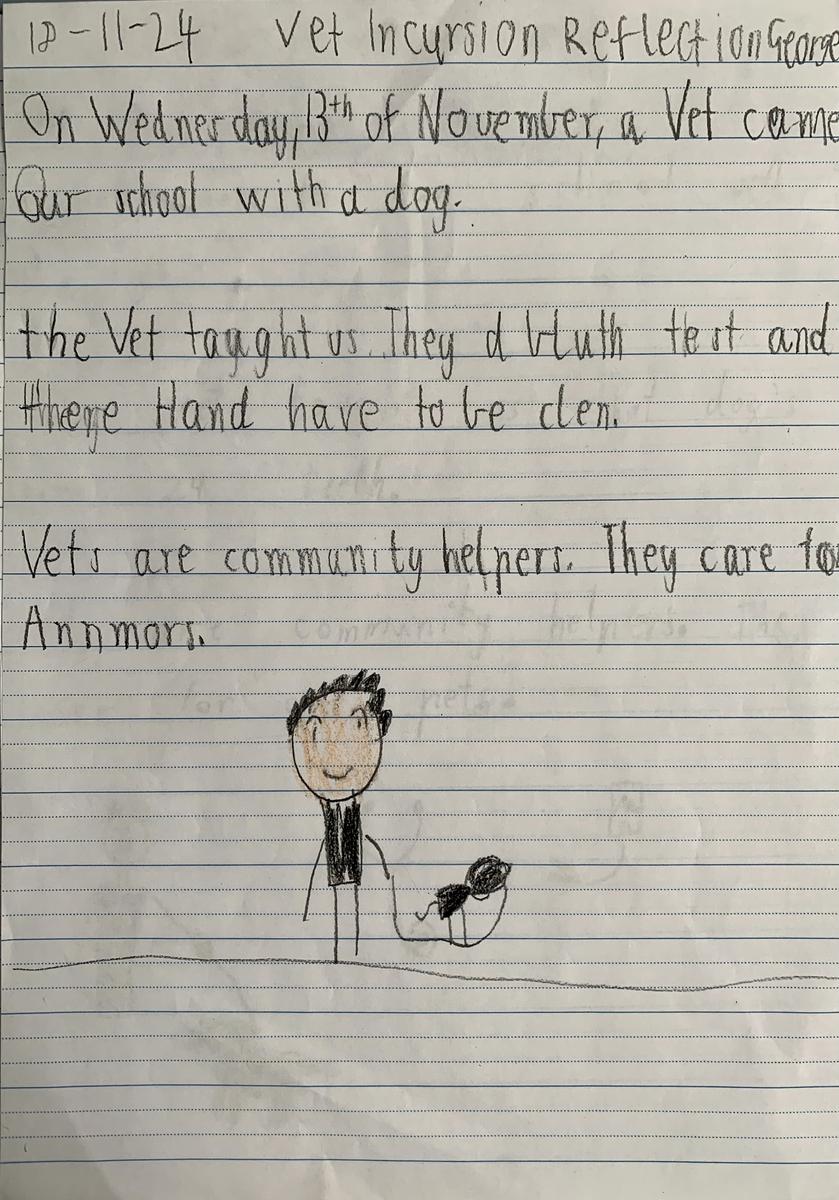 18-11-24 Vet Incursion Reflection George
On Wednesday, 13th of November, a Vet came
Our school with a dog.
the Vet taught us. They d bluth test and
there Hand have to be clen.
Vets are community helpers. They care for
Annmors.